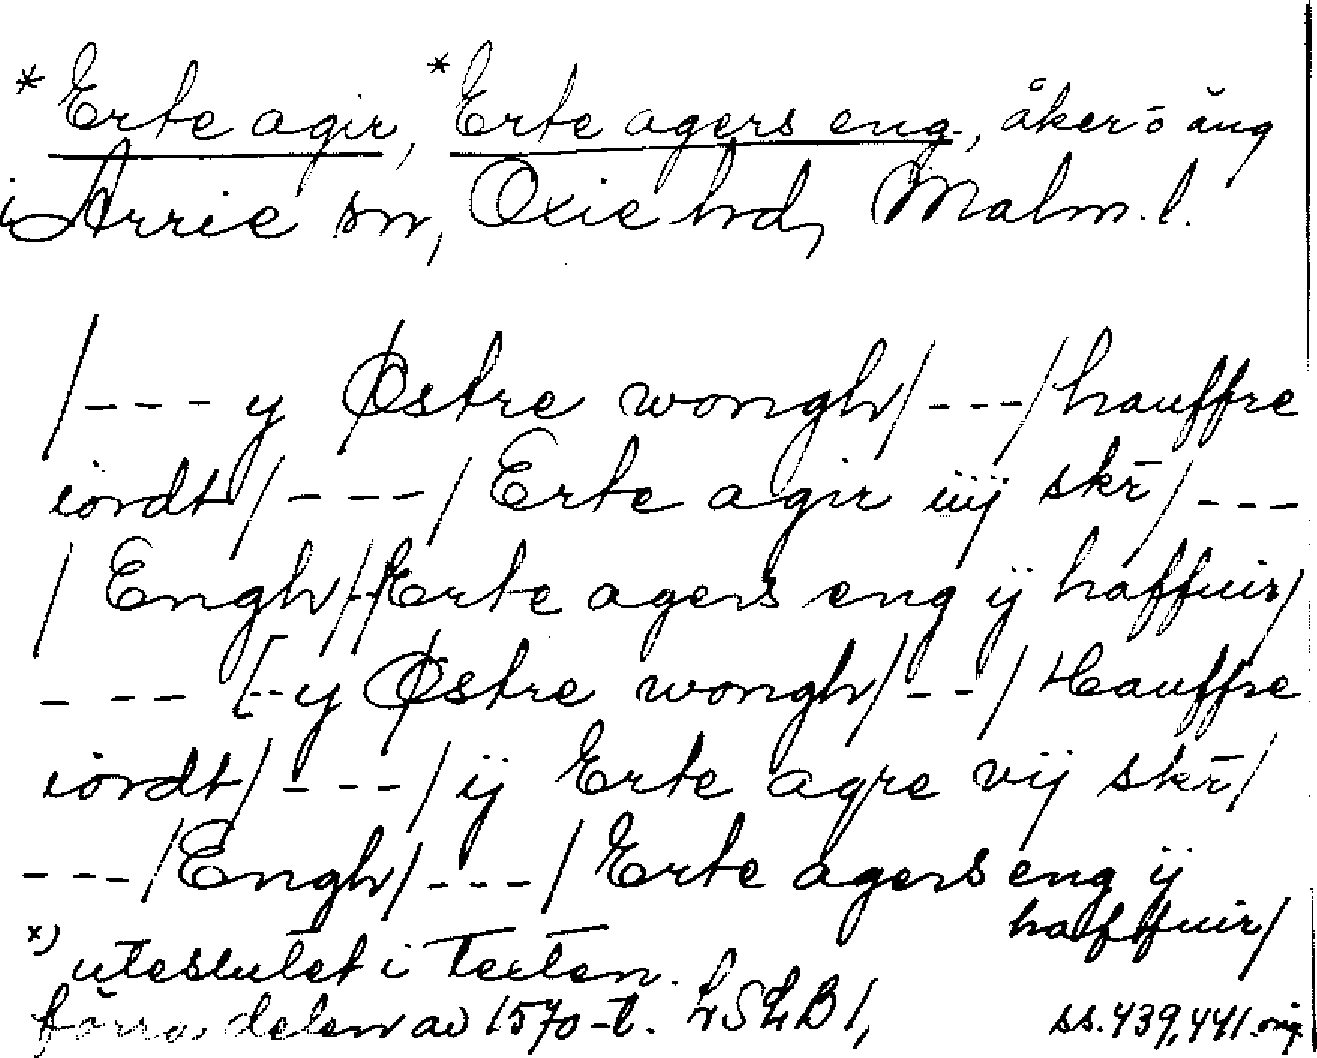 * Erte agir, * Erte agers eng, åker o äng
i Arrie sn, Oxie hd, Malm. l.
/--- y Østre wongh/---/hauffre
iordt/---/ Erte agir iiij skr̄/---
/ Engh/-/Erte agers eng ij haffuir/
--- [-- y Østre wongh/--/ Hauffre
iordt/---/ ij Erte agre vij skr̄/
---/Engh/---/ Erte agers eng ij
haffuir/
x) uteslutet i Texten.
förra delen av 1570-t. LSLB 1, ss. 439, 441. orig.